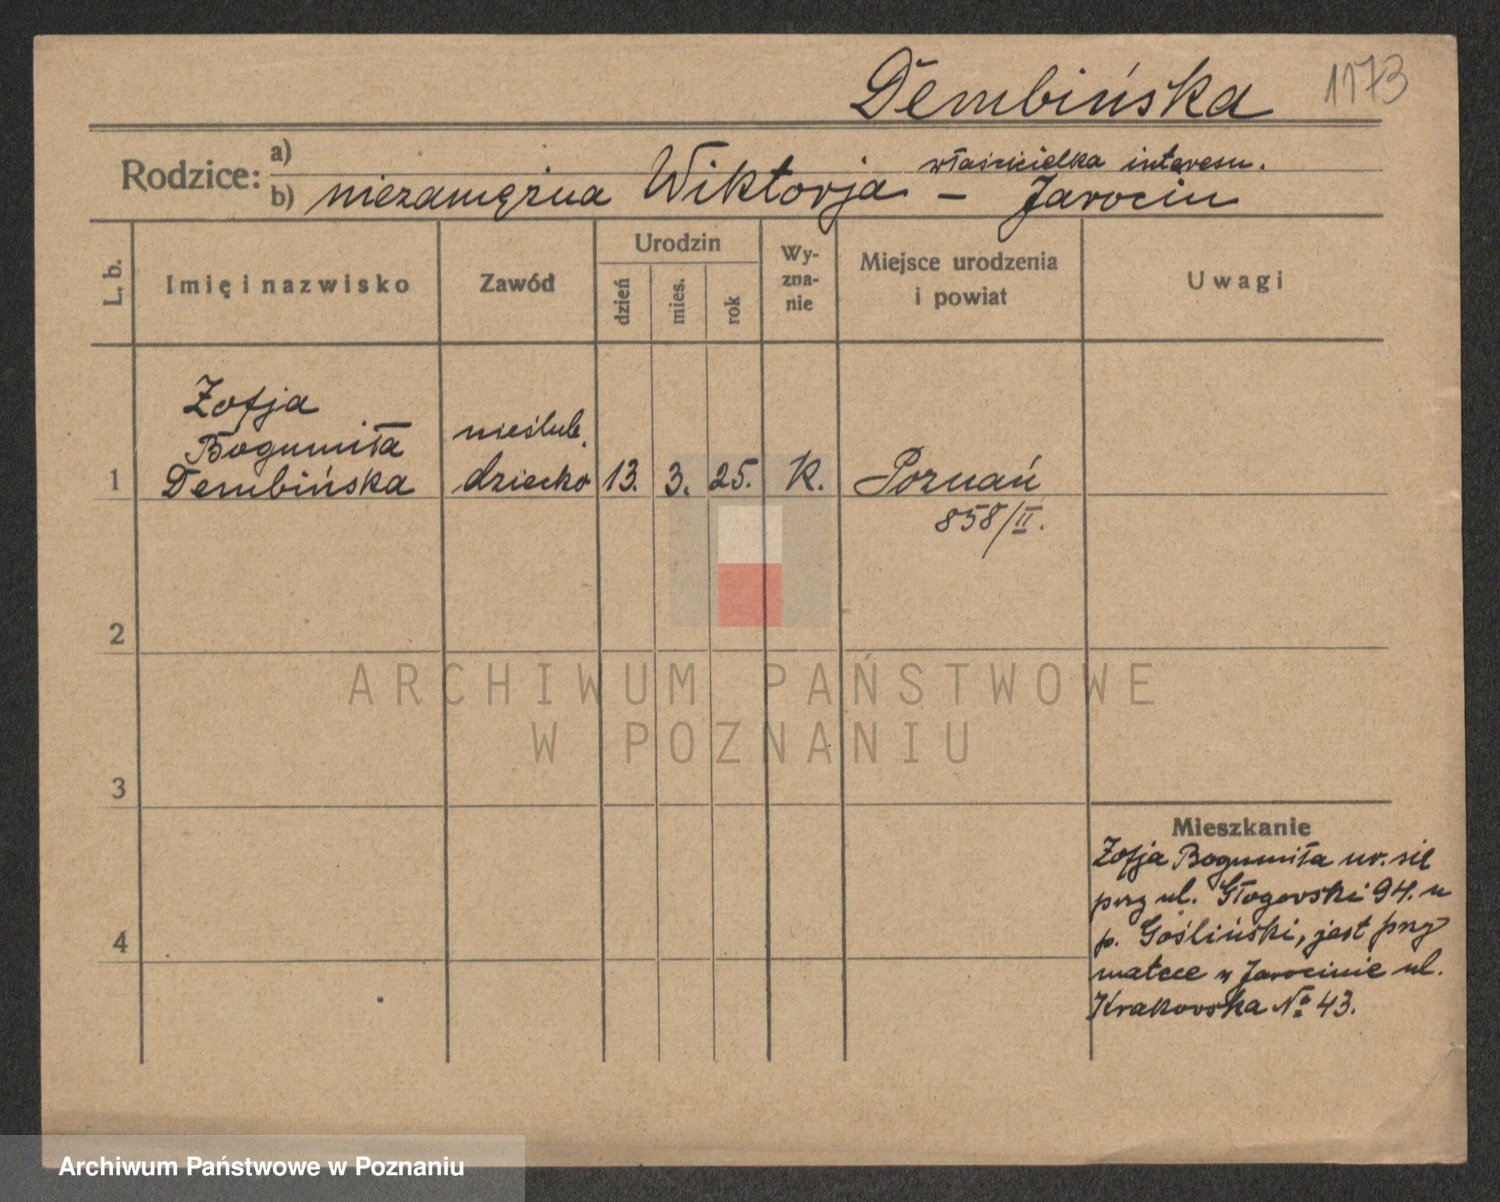 Dembińska 1173
Rodzice: a)
właścicielka interesu.
b) niezamężna Wiktorja – Jarocin
L. b.
Imię i nazwisko
Zawód
Urodzin
dzień
mies.
rok
Wy-
zna-
nie
Miejsce urodzenia
i powiat
Uwagi
1
Zofja
Bogumiła
Dembińska
nieślub.
dziecko
13.
3.
25.
K.
Poznań
858/II.
2
3
4
Mieszkanie
Zofja Bogumiła ur. się
przy ul. Głogovski 94. u
p. Gośliński, jest przy
matce w Jarocinie ul.
Krakovska № 43.
ARCHIWUM PAŃSTWOWE
W POZNANIU
Archiwum Państwowe w Poznaniu